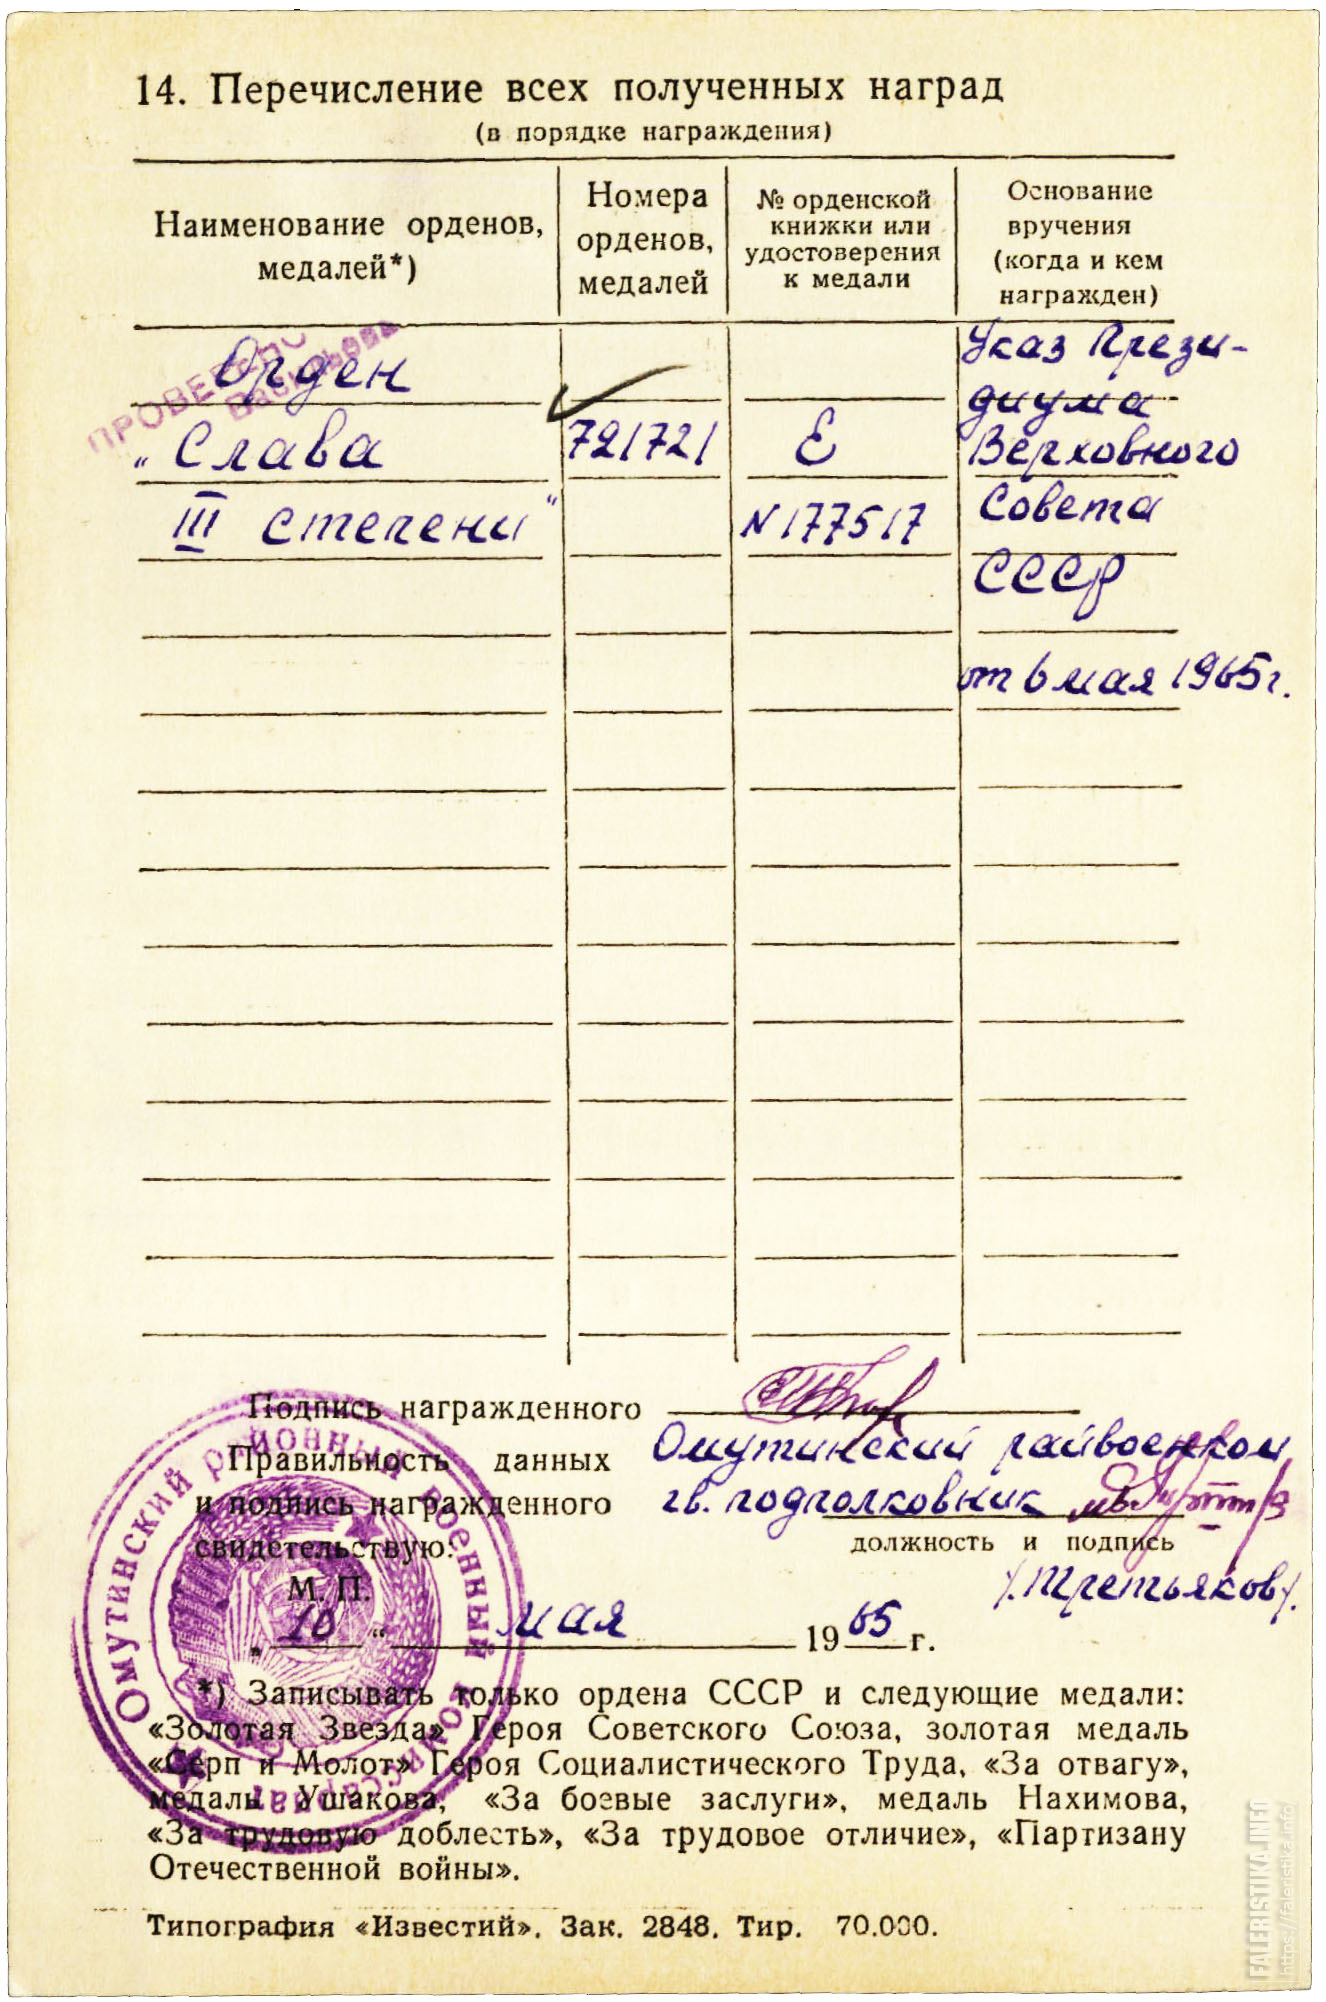 14. Перечисление всех полученных наград
(в порядке награждения)
Наименование орденов,
медалей*)
Номера
орденов,
медалей
№ орденской
книжки или
удостоверения
к медали
Основание
вручения
(когда и кем
награжден)
ПРОВЕРЕНО
Васильева
Орден
„Слава
III степени"
721721
Е
N 177517
Указ Прези-
диума
Верховного
Совета
СССР
от 6 мая 1965 г.
Подпись награжденного
Правильность данных
и подпись награжденного
свидетельствую:
Омутинский райвоенком
гв. подполковник
должность и подпись
/.Третьяков/.
М. П.
„ 10 “ мая 1965 г.
Омутинский районный военный комиссариат
*) Записывать только ордена СССР и следующие медали:
«Золотая Звезда» Героя Советского Союза, золотая медаль
«Серп и Молот» Героя Социалистического Труда, «За отвагу»,
медаль Ушакова, «За боевые заслуги», медаль Нахимова,
«За трудовую доблесть», «За трудовое отличие», «Партизану
Отечественной войны».
Типография «Известий». Зак. 2848. Тир. 70.000.
FALERISTIKA.INFO
https://faleristika.info